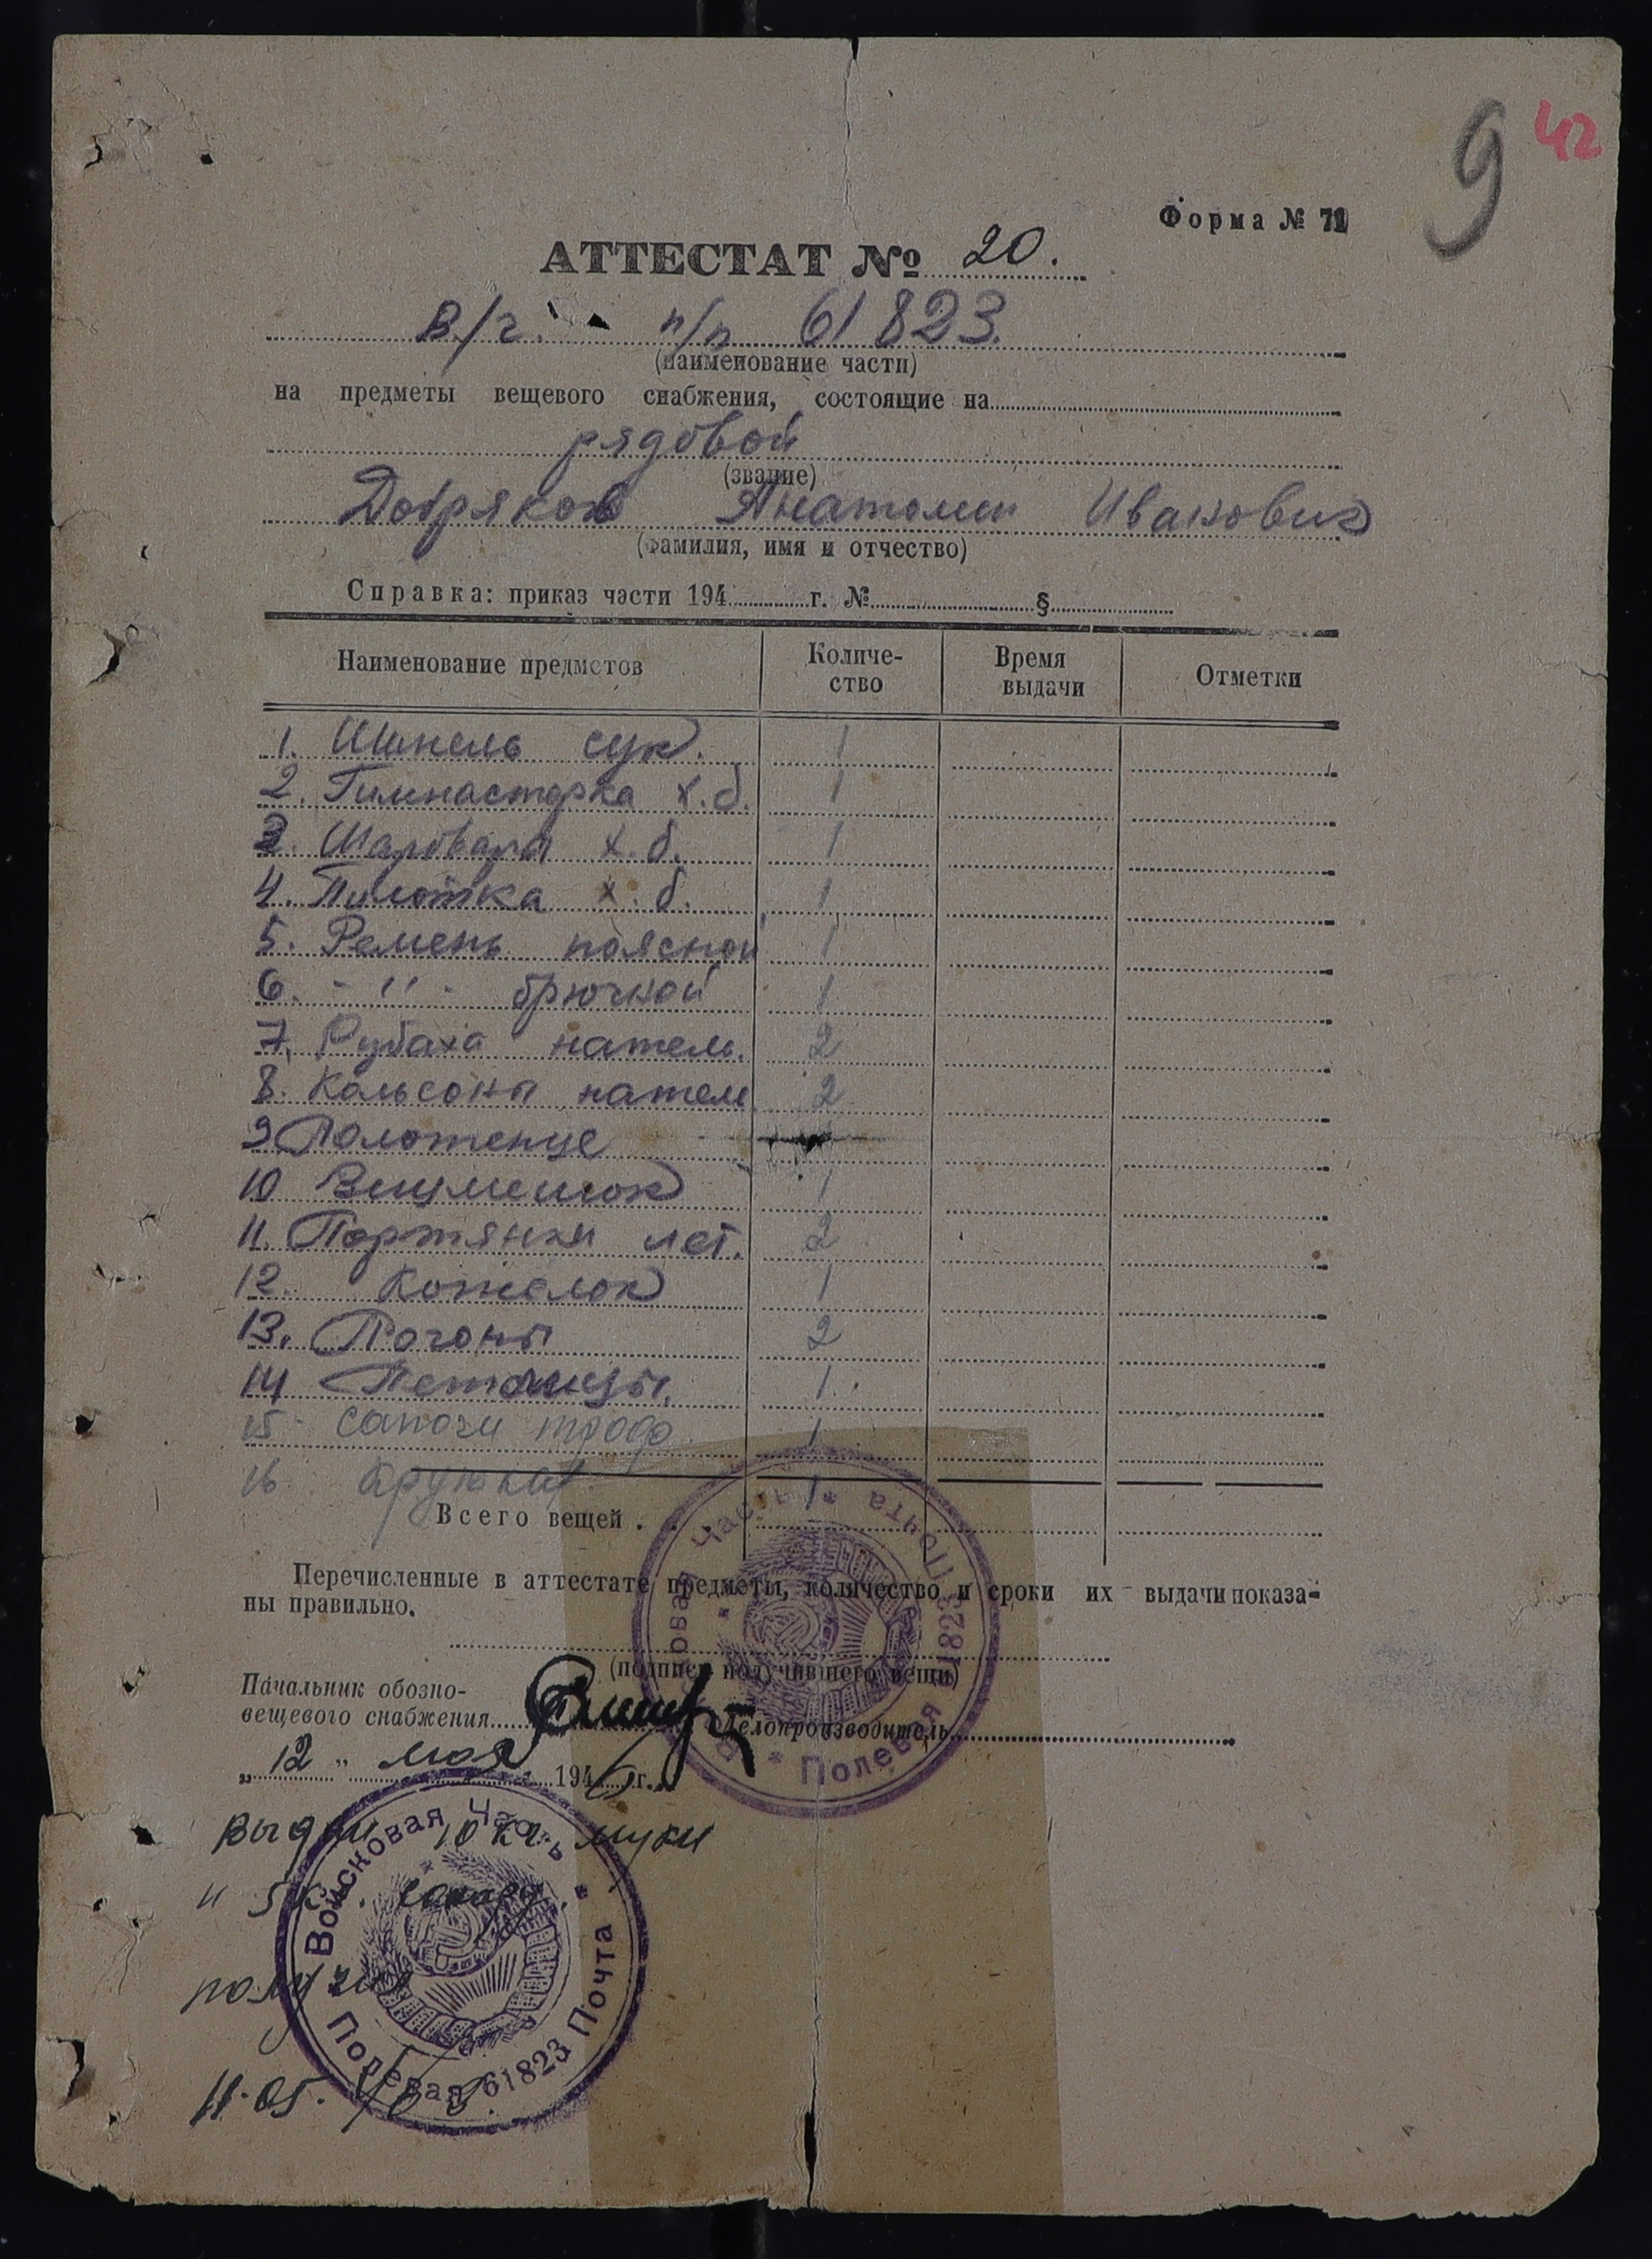 9 42
Форма № 71
АТТЕСТАТ № 20.
в/ч. п/п 61823.
(наименование части)
на предметы вещевого снабжения, состоящие на
рядовой
(звание)
Добряков Анатолий Иванович
(фамилия, имя и отчество)
Справка: приказ части 194 г. № §
Наименование предметов Количе- Время Отметки
ство выдачи
1. Шинель сук. 1
2. Гимнастерка х.б. 1
3. Шаровары х.б. 1
4. Пилотка х.б. 1
5. Ремень поясной 1
6. - " - брючной 1
7. Рубаха нател. 2
8. Кальсоны нател 2
9 Полотенце
10 Вещмешок 1
11. Портянки лет. 2
12. Котелок 1
13. Погоны 2
14 Петлицы. 1
15 Сапоги трофр. 1
16 1
Всего вещей .
Перечисленные в аттестате предметы, количество и сроки их выдачи показа-
ны правильно.
(подпись получившего вещи)
Начальник обозно-
вещевого снабжения Делопроизводитель
„ 12 " мая 1946 г.
Войсковая Часть * Полевая Почта 61823 *
Выдан 10 кг муки
и 5 кг. сахара.
получил
11.05.
Войсковая Часть * Полевая Почта 61823 *